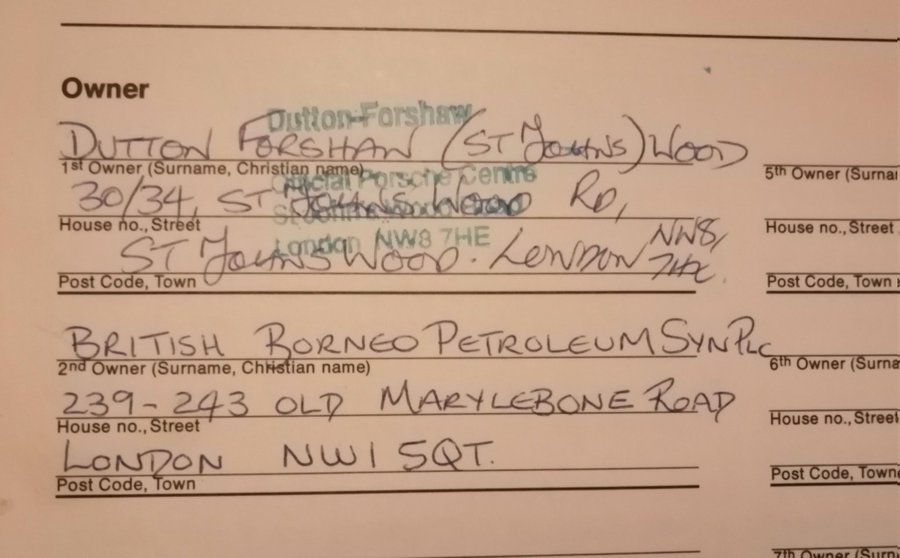 Owner
Dutton-Forshaw
DUTTON FORSHAW (ST JOHNS) WOOD
1st Owner (Surname, Christian name)
Official Porsche Centre
30/34, ST JOHNS WOOD RD,
House no., Street
London NW8 7HE
ST JOHNS WOOD. LONDON NW8, 7HE.
Post Code, Town
BRITISH BORNEO PETROLEUM SYN PLC
2nd Owner (Surname, Christian name)
239-243 OLD MARYLEBONE ROAD
House no., Street
LONDON NW1 5QT.
Post Code, Town
5th Owner (Surna
House no., Street
Post Code, Town
6th Owner (Surna
House no., Street
Post Code, Town
7th Owner (Surn